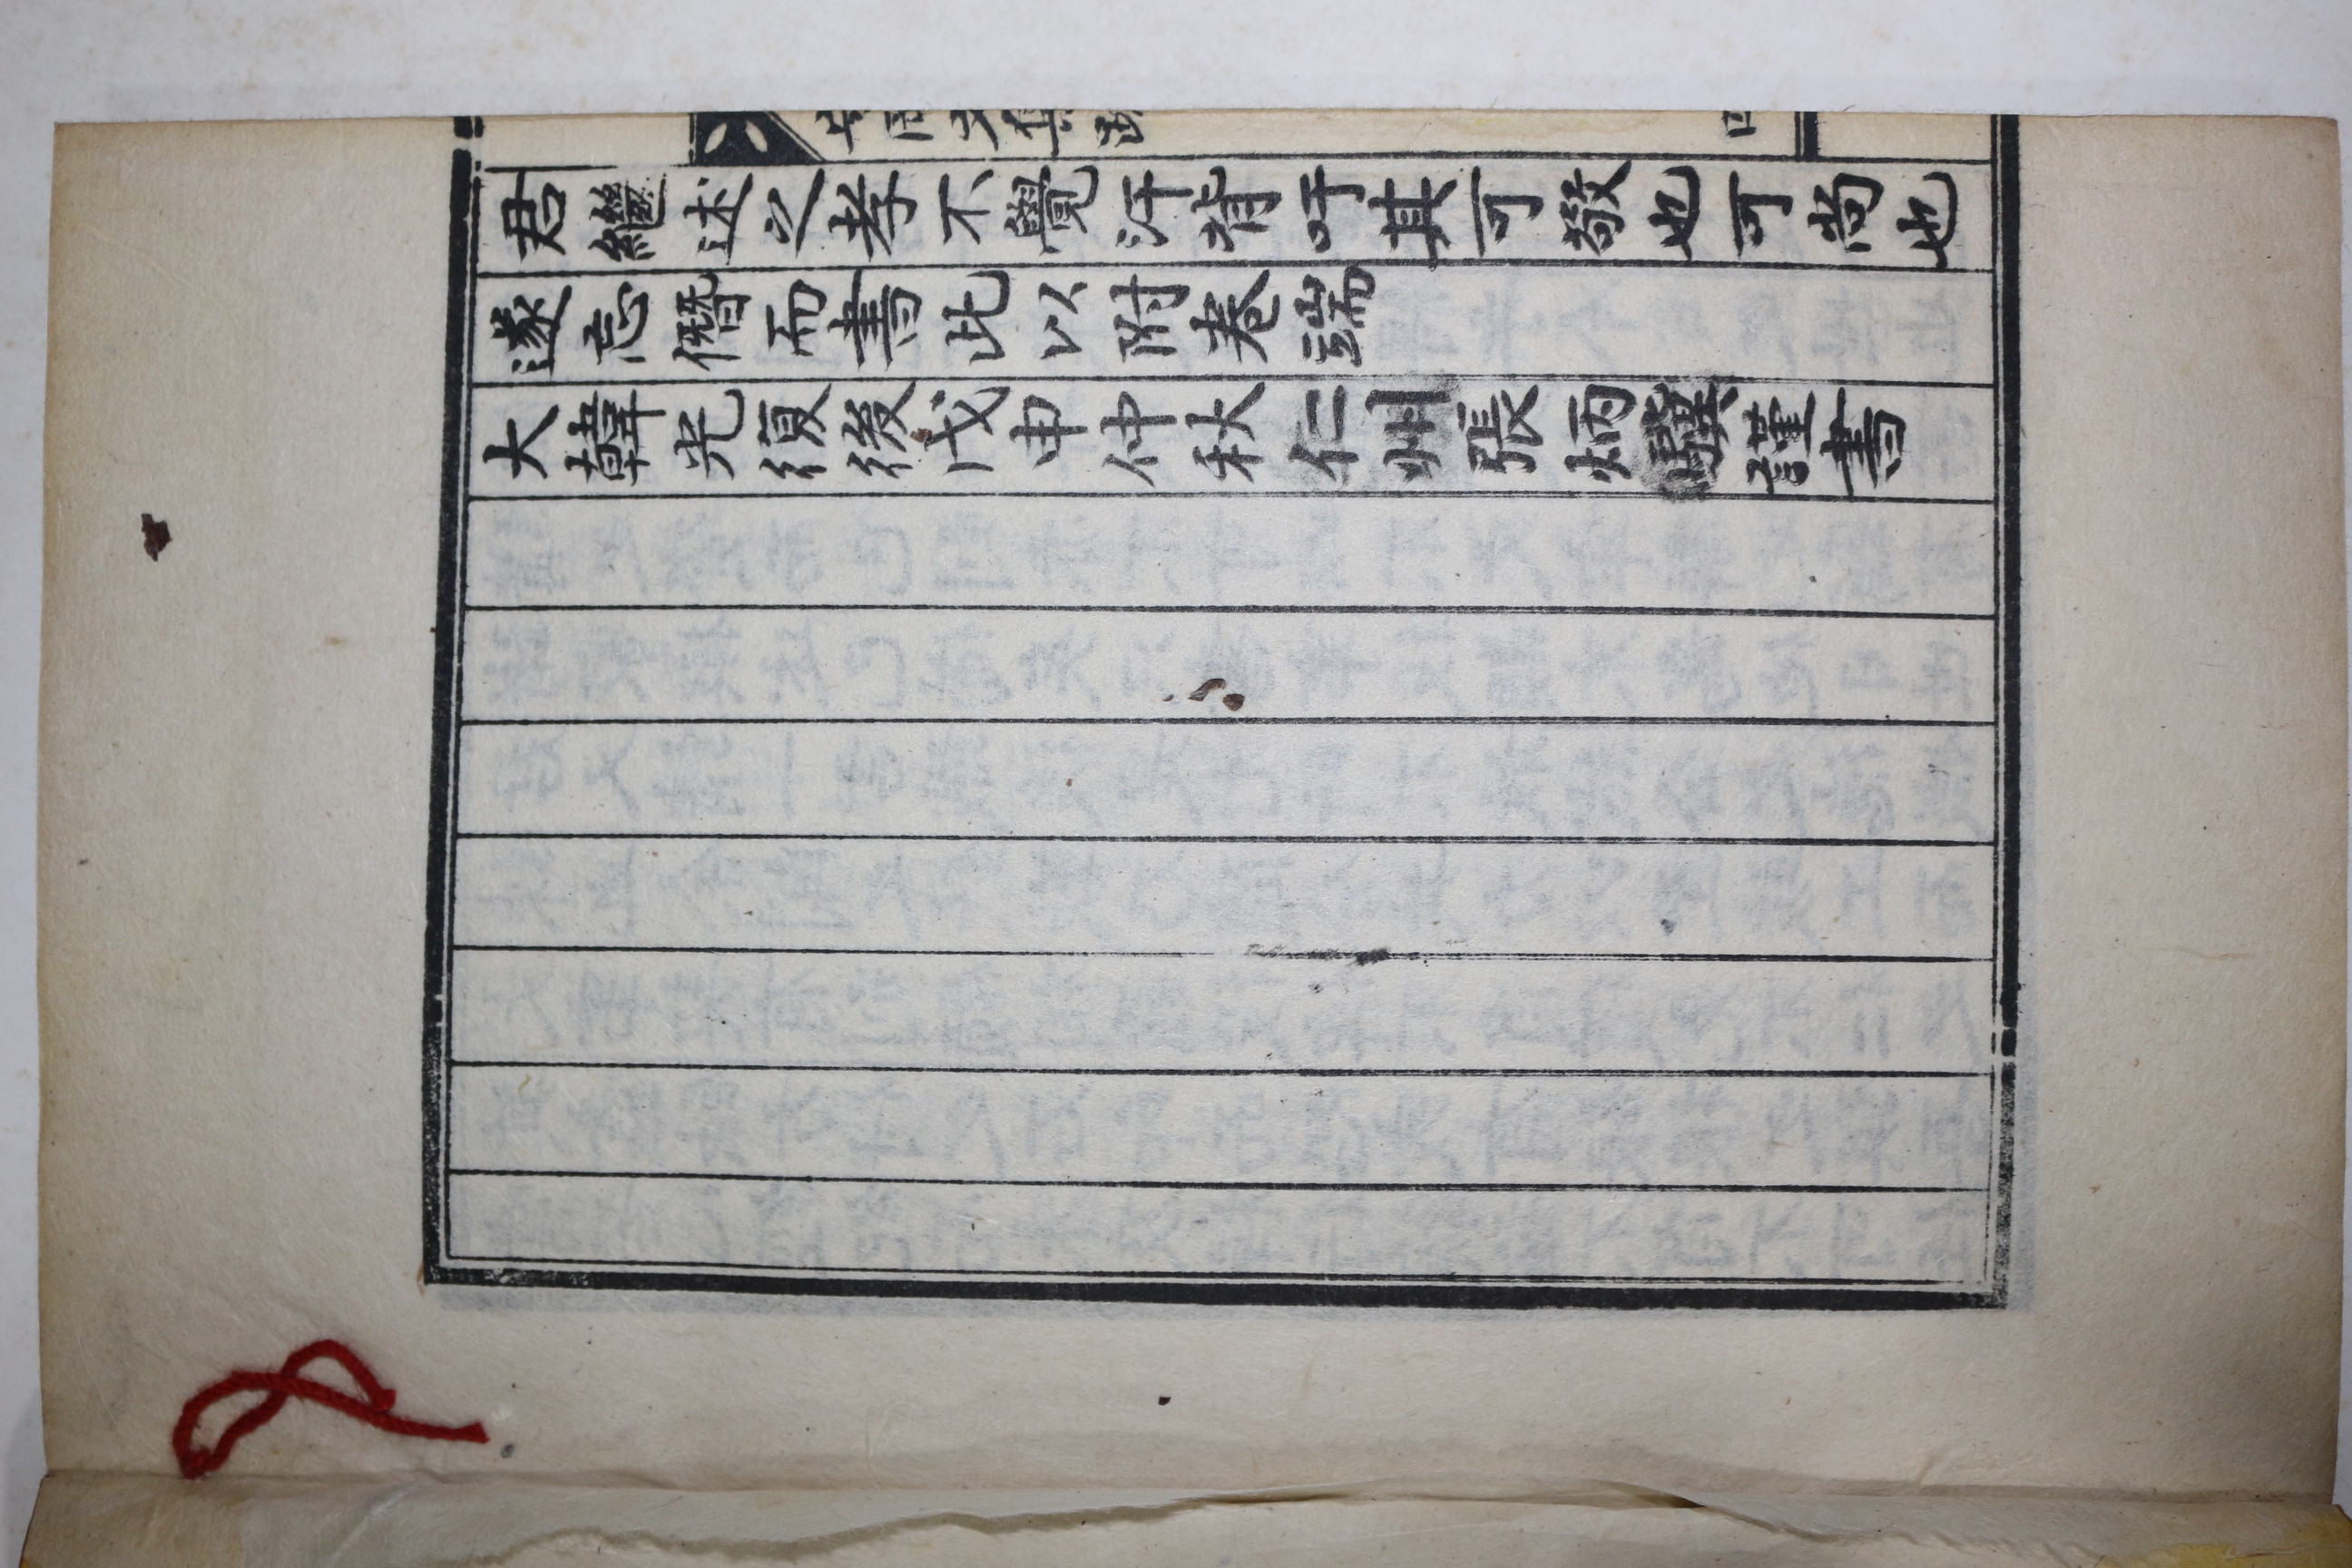 君繼述之孝不覺汗背吁其可敬也可尚也
遂忘僭而書此以附卷端
大韓光復後戊申仲秋仁州張炳驥謹書
文集跋
四